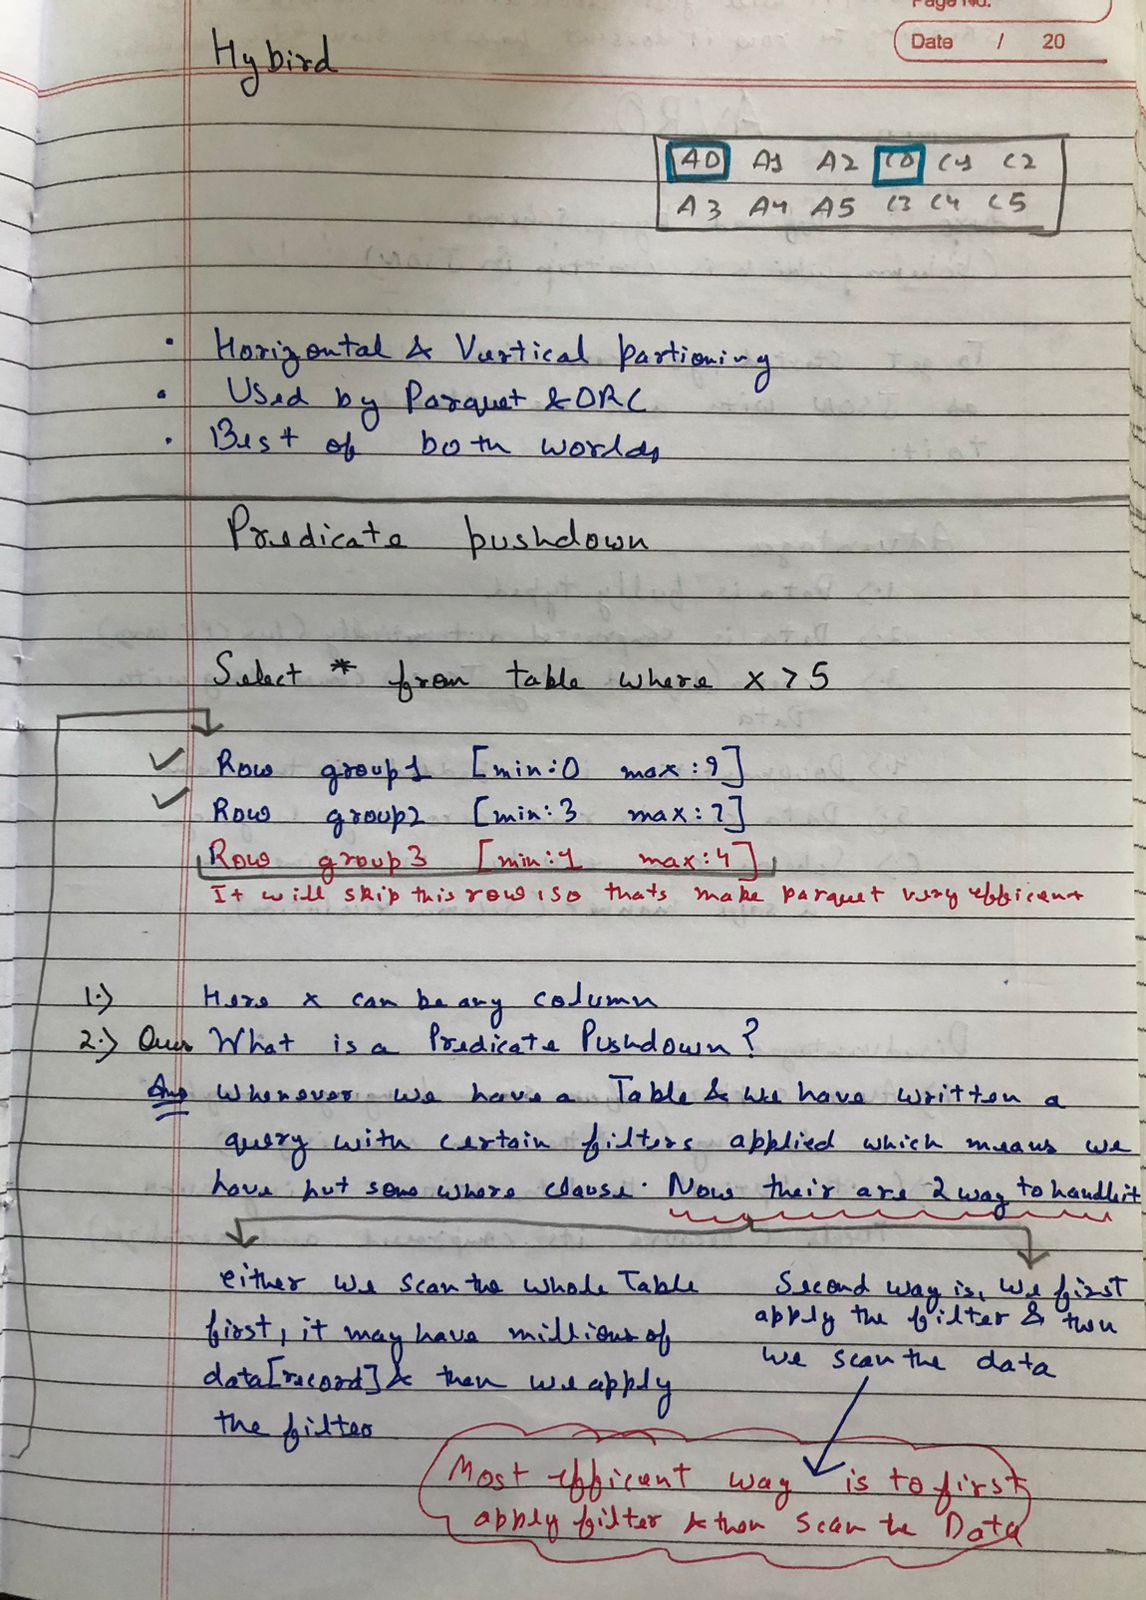 Page No.
Date / 20
Hybird
A0 A1 A2 C0 C1 C2
A3 A4 A5 C3 C4 C5
• Horizontal & Vertical Partioning
• Used by Parquet & ORC
• Best of both worlds
Predicate pushdown
Select * from table where x > 5
✓ Row group1 [min:0 max:9]
✓ Row group2 [min:3 max:7]
Row group3 [min:1 max:4]
It will skip this row, so thats make parquet very efficent
1.) Here x can be any column
2.) Ques What is a Predicate Pushdown?
Ans Whenever we have a Table & we have written a
query with certain filters applied which means we
have put some where clause. Now their are 2 way to handle it
either we scan the whole Table
first, it may have millions of
data[record] & then we apply
the filter
Second way is, we first
apply the filter & then
we scan the data
Most efficent way is to first
apply filter & then scan the Data